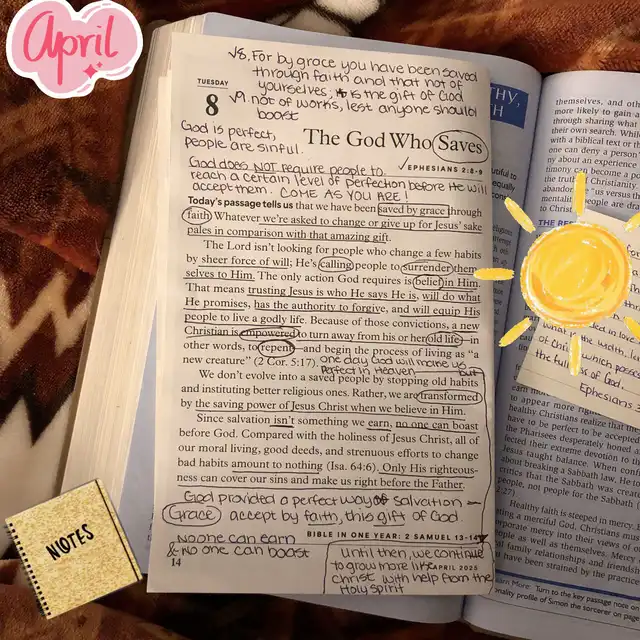 April
√8, For by grace you have been saved
through faith and that not of
yourselves; it is the gift of God
√9. not of works, lest anyone should
boast
TUESDAY
8
God is perfect,
people are sinful.
The God Who Saves
God does NOT require people to
reach a certain level of perfection before He will
accept them. COME AS YOU ARE!
✓EPHESIANS 2:8-9
Today's passage tells us that we have been saved by grace through
faith. Whatever we're asked to change or give up for Jesus' sake
pales in comparison with that amazing gift.
The Lord isn't looking for people who change a few habits
by sheer force of will; He's calling people to surrender them-
selves to Him. The only action God requires is belief in Him.
That means trusting Jesus is who He says He is, will do what
He promises, has the authority to forgive, and will equip His
people to live a godly life. Because of those convictions, a new
Christian is empowered to turn away from his or her old life—in
other words, to repent—and begin the process of living as "a
new creature" (2 Cor. 5:17). one day God will make us
perfect in Heaven but
We don't evolve into a saved people by stopping old habits
and instituting better religious ones. Rather, we are transformed
by the saving power of Jesus Christ when we believe in Him.
Since salvation isn't something we earn, no one can boast
before God. Compared with the holiness of Jesus Christ, all of
our moral living, good deeds, and strenuous efforts to change
bad habits amount to nothing (Isa. 64:6). Only His righteous-
ness can cover our sins and make us right before the Father.
God provided a perfect way of salvation –
Grace accept by faith, this gift of God.
No one can earn
& no one can boast
BIBLE IN ONE YEAR: 2 SAMUEL 13-14
14
APRIL 2025
Until then, we continue
to grow more like
christ with help from the
Holy spirit
NOTES
THY,
TH
themselves, and oth
more likely to gain a
through sharing what
their own search. What
with a biblical text or th
one can deny a person'
ny about an experience
timony can become a po
the truth of Christianity
abandon the "us versus th
mentality. People are dra
to Christ.
to appear more right
healthy Christians realize that the
have to be perfect to be accepted
the Pharisees desperately honed a
fected their extreme devotion to th
Jesus taught balance. When conf
about breaking a Sabbath law, He to
critics that the Sabbath was crea
people, not people for the Sabbath (
2:27)
Healthy faith is steeped in mercy,
ing a merciful God. Christians must
corporate mercy into their views of
people as well as themselves. Mercy
all family relationships and friendsh
have been strained by the practice
Learn More: Turn to the key passage note on
onality profile of Simon the sorcerer on page
of Christ which passes
the fullness of God.
Ephesians 3